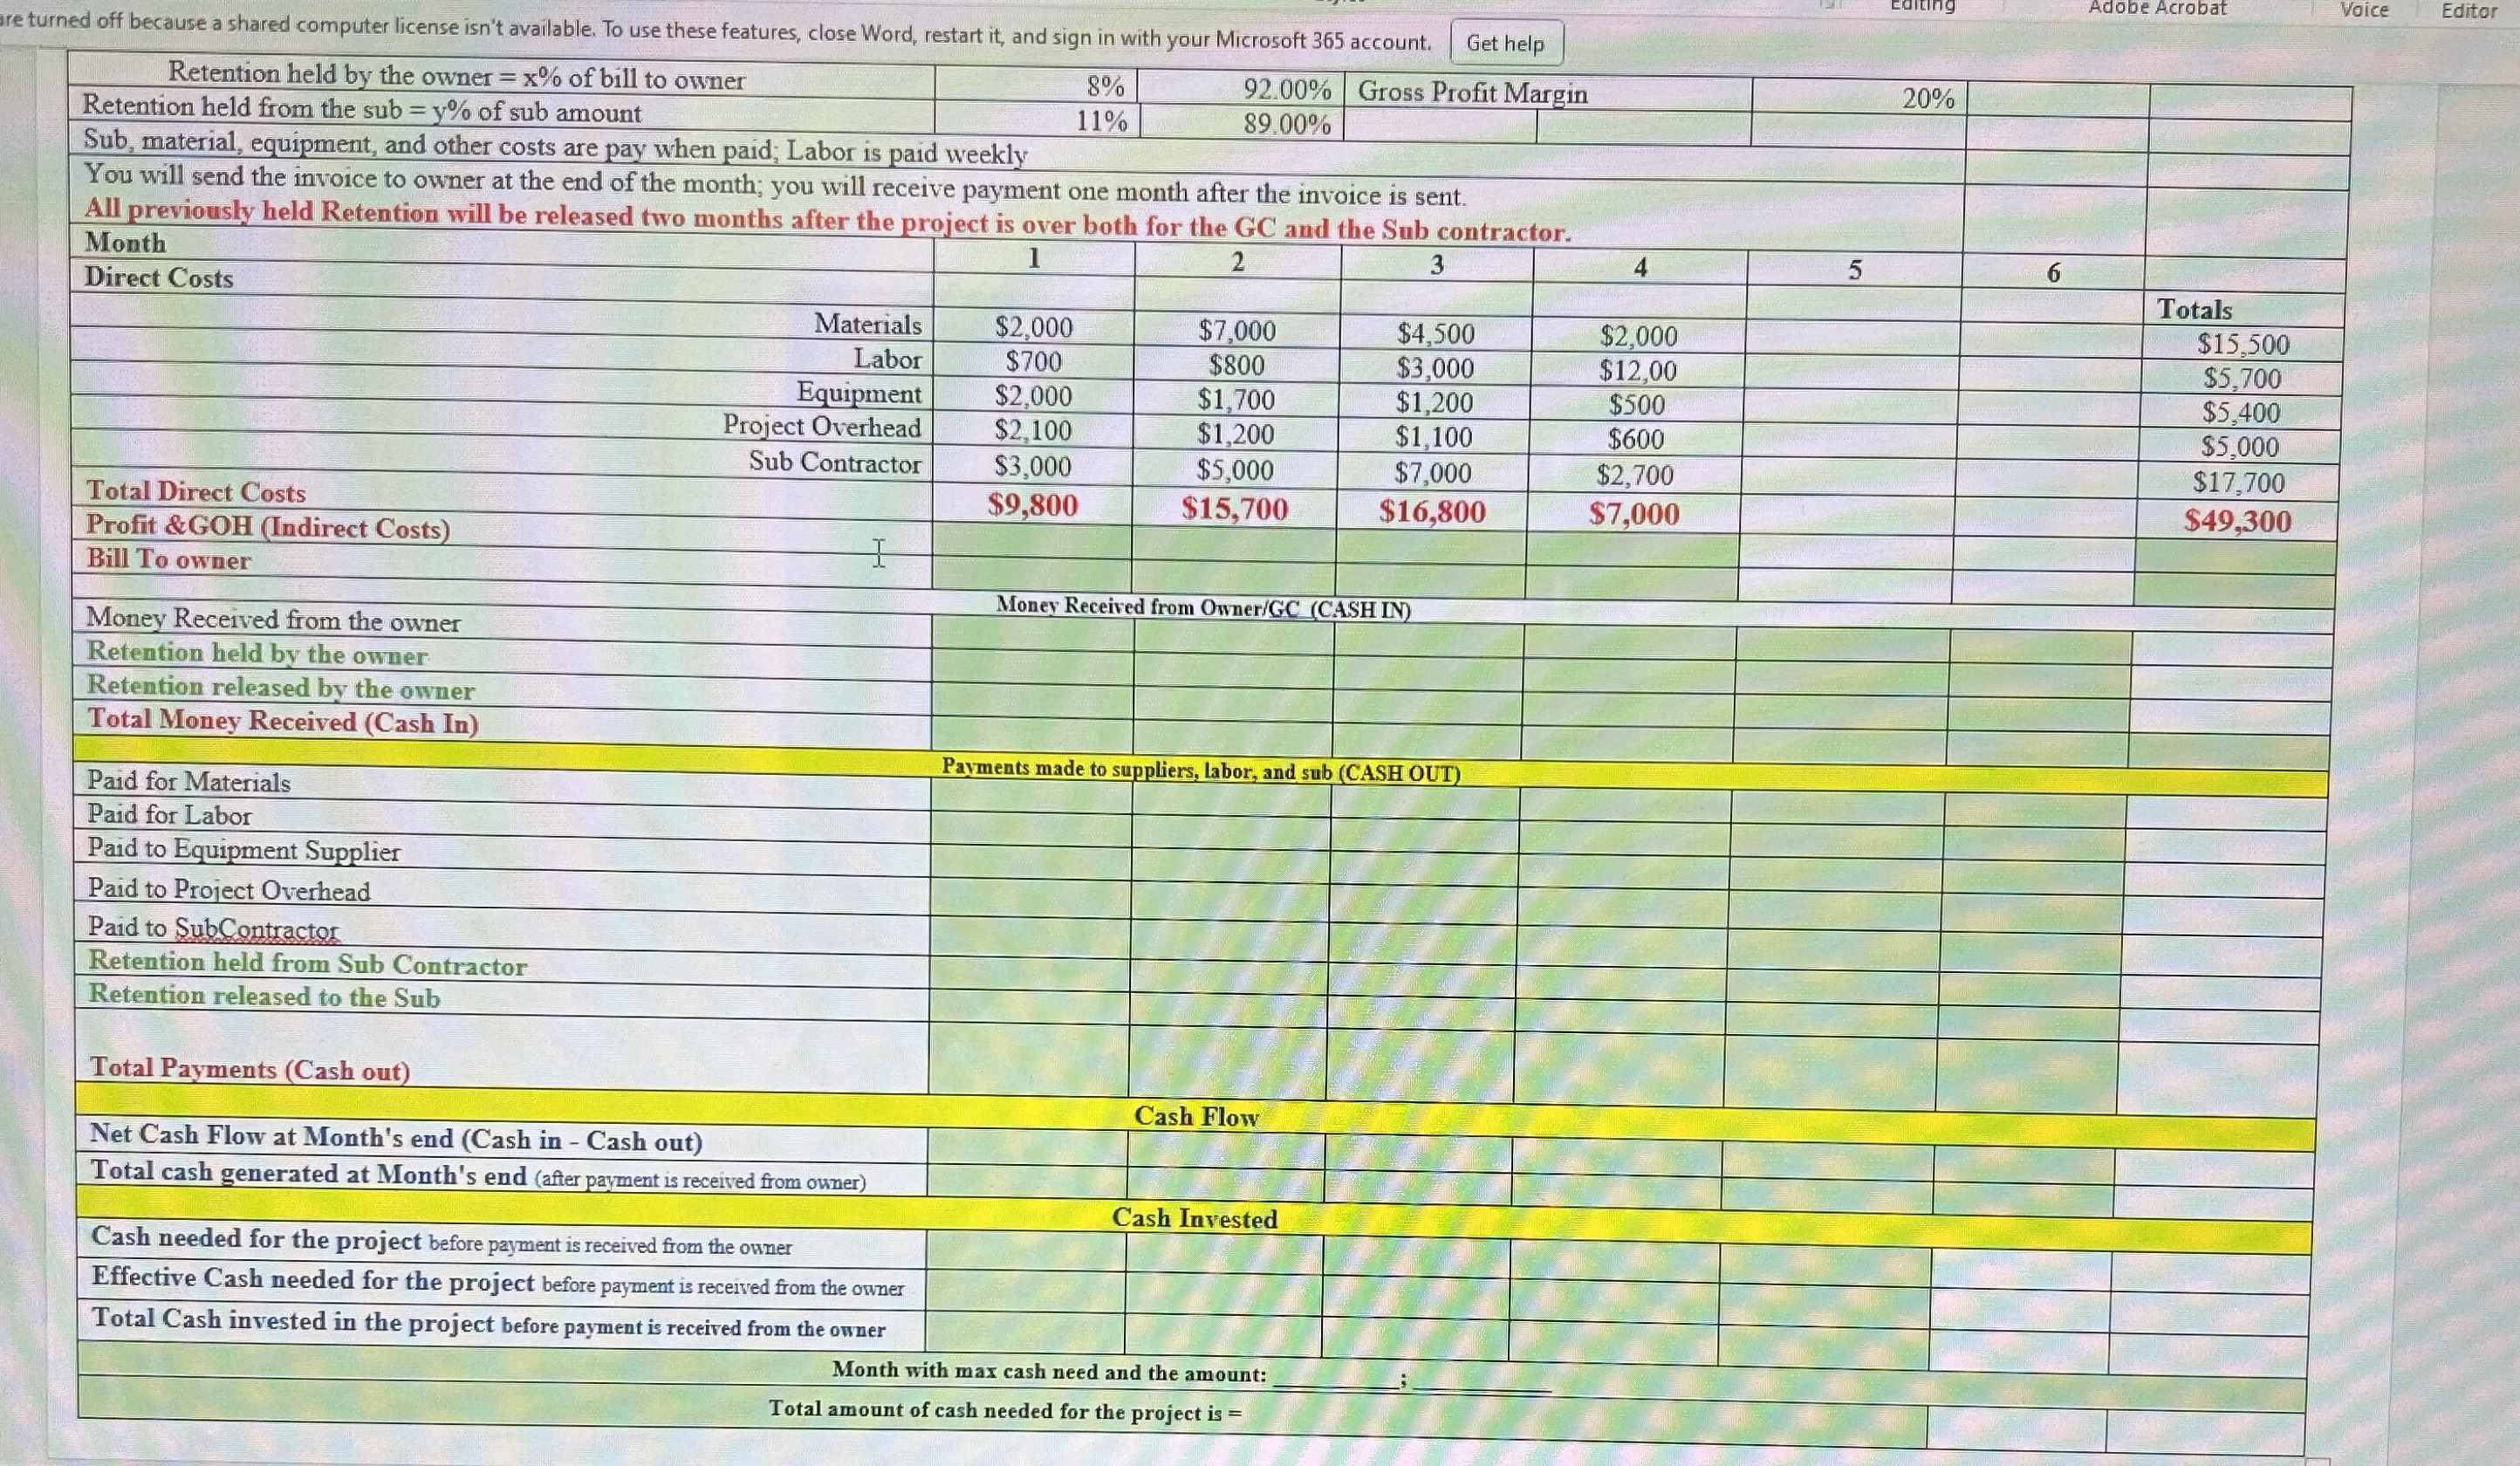 Editing Adobe Acrobat Voice Editor
are turned off because a shared computer license isn't available. To use these features, close Word, restart it, and sign in with your Microsoft 365 account. Get help
Retention held by the owner = x% of bill to owner 8% 92.00% Gross Profit Margin 20%
Retention held from the sub = y% of sub amount 11% 89.00%
Sub, material, equipment, and other costs are pay when paid; Labor is paid weekly
You will send the invoice to owner at the end of the month; you will receive payment one month after the invoice is sent.
All previously held Retention will be released two months after the project is over both for the GC and the Sub contractor.
Month 1 2 3 4 5 6
Direct Costs Totals
Materials $2,000 $7,000 $4,500 $2,000 $15,500
Labor $700 $800 $3,000 $12,00 $5,700
Equipment $2,000 $1,700 $1,200 $500 $5,400
Project Overhead $2,100 $1,200 $1,100 $600 $5,000
Sub Contractor $3,000 $5,000 $7,000 $2,700 $17,700
Total Direct Costs $9,800 $15,700 $16,800 $7,000 $49,300
Profit &GOH (Indirect Costs)
Bill To owner
Money Received from Owner/GC (CASH IN)
Money Received from the owner
Retention held by the owner
Retention released by the owner
Total Money Received (Cash In)
Payments made to suppliers, labor, and sub (CASH OUT)
Paid for Materials
Paid for Labor
Paid to Equipment Supplier
Paid to Project Overhead
Paid to SubContractor
Retention held from Sub Contractor
Retention released to the Sub
Total Payments (Cash out)
Cash Flow
Net Cash Flow at Month's end (Cash in - Cash out)
Total cash generated at Month's end (after payment is received from owner)
Cash Invested
Cash needed for the project before payment is received from the owner
Effective Cash needed for the project before payment is received from the owner
Total Cash invested in the project before payment is received from the owner
Month with max cash need and the amount: ____________; ____________
Total amount of cash needed for the project is =